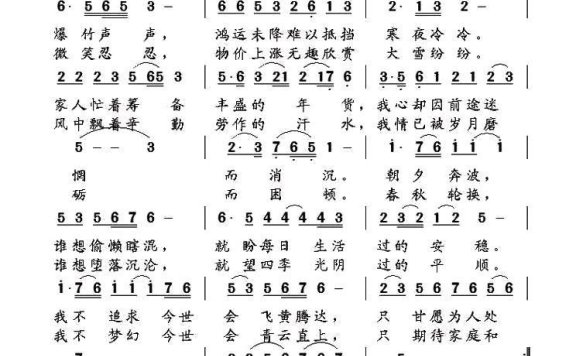 爆 竹 声 声， 鸿运未降难以抵挡 寒 夜 冷 冷。
微 笑 忍 忍， 物价上涨无趣欣赏 大 雪 纷 纷。
2 2 2 2 3 5 65 3 | 5·6 3 21 2 176 | 3·5 6 1 2 1 2 23
家人忙着筹 备 丰盛的 年 货，我心却因前途迷
风中飘着辛 勤 劳作的 汗 水，我情已被岁月磨
5 – – 3 | 2·3 765 3 | 1·7 6 1 1 1
惆 而 消 沉。 朝 夕 奔 波，
砺 而 困 顿。 春 秋 轮 换，
5 3 5 6 7 6 – | 6· 3 4 4 4 4 4 3 | 2 3 2 1 2 5 –
谁想偷懒瞎混， 就 盼每日 生活 过的 安 稳。
谁想堕落沉沦， 就 望四季 光阴 过的 平 顺。
我 不 追求 今世 会 飞黄腾达， 只 甘愿为人处
我 不 梦幻 今世 会 青云直上， 只 期待家庭和